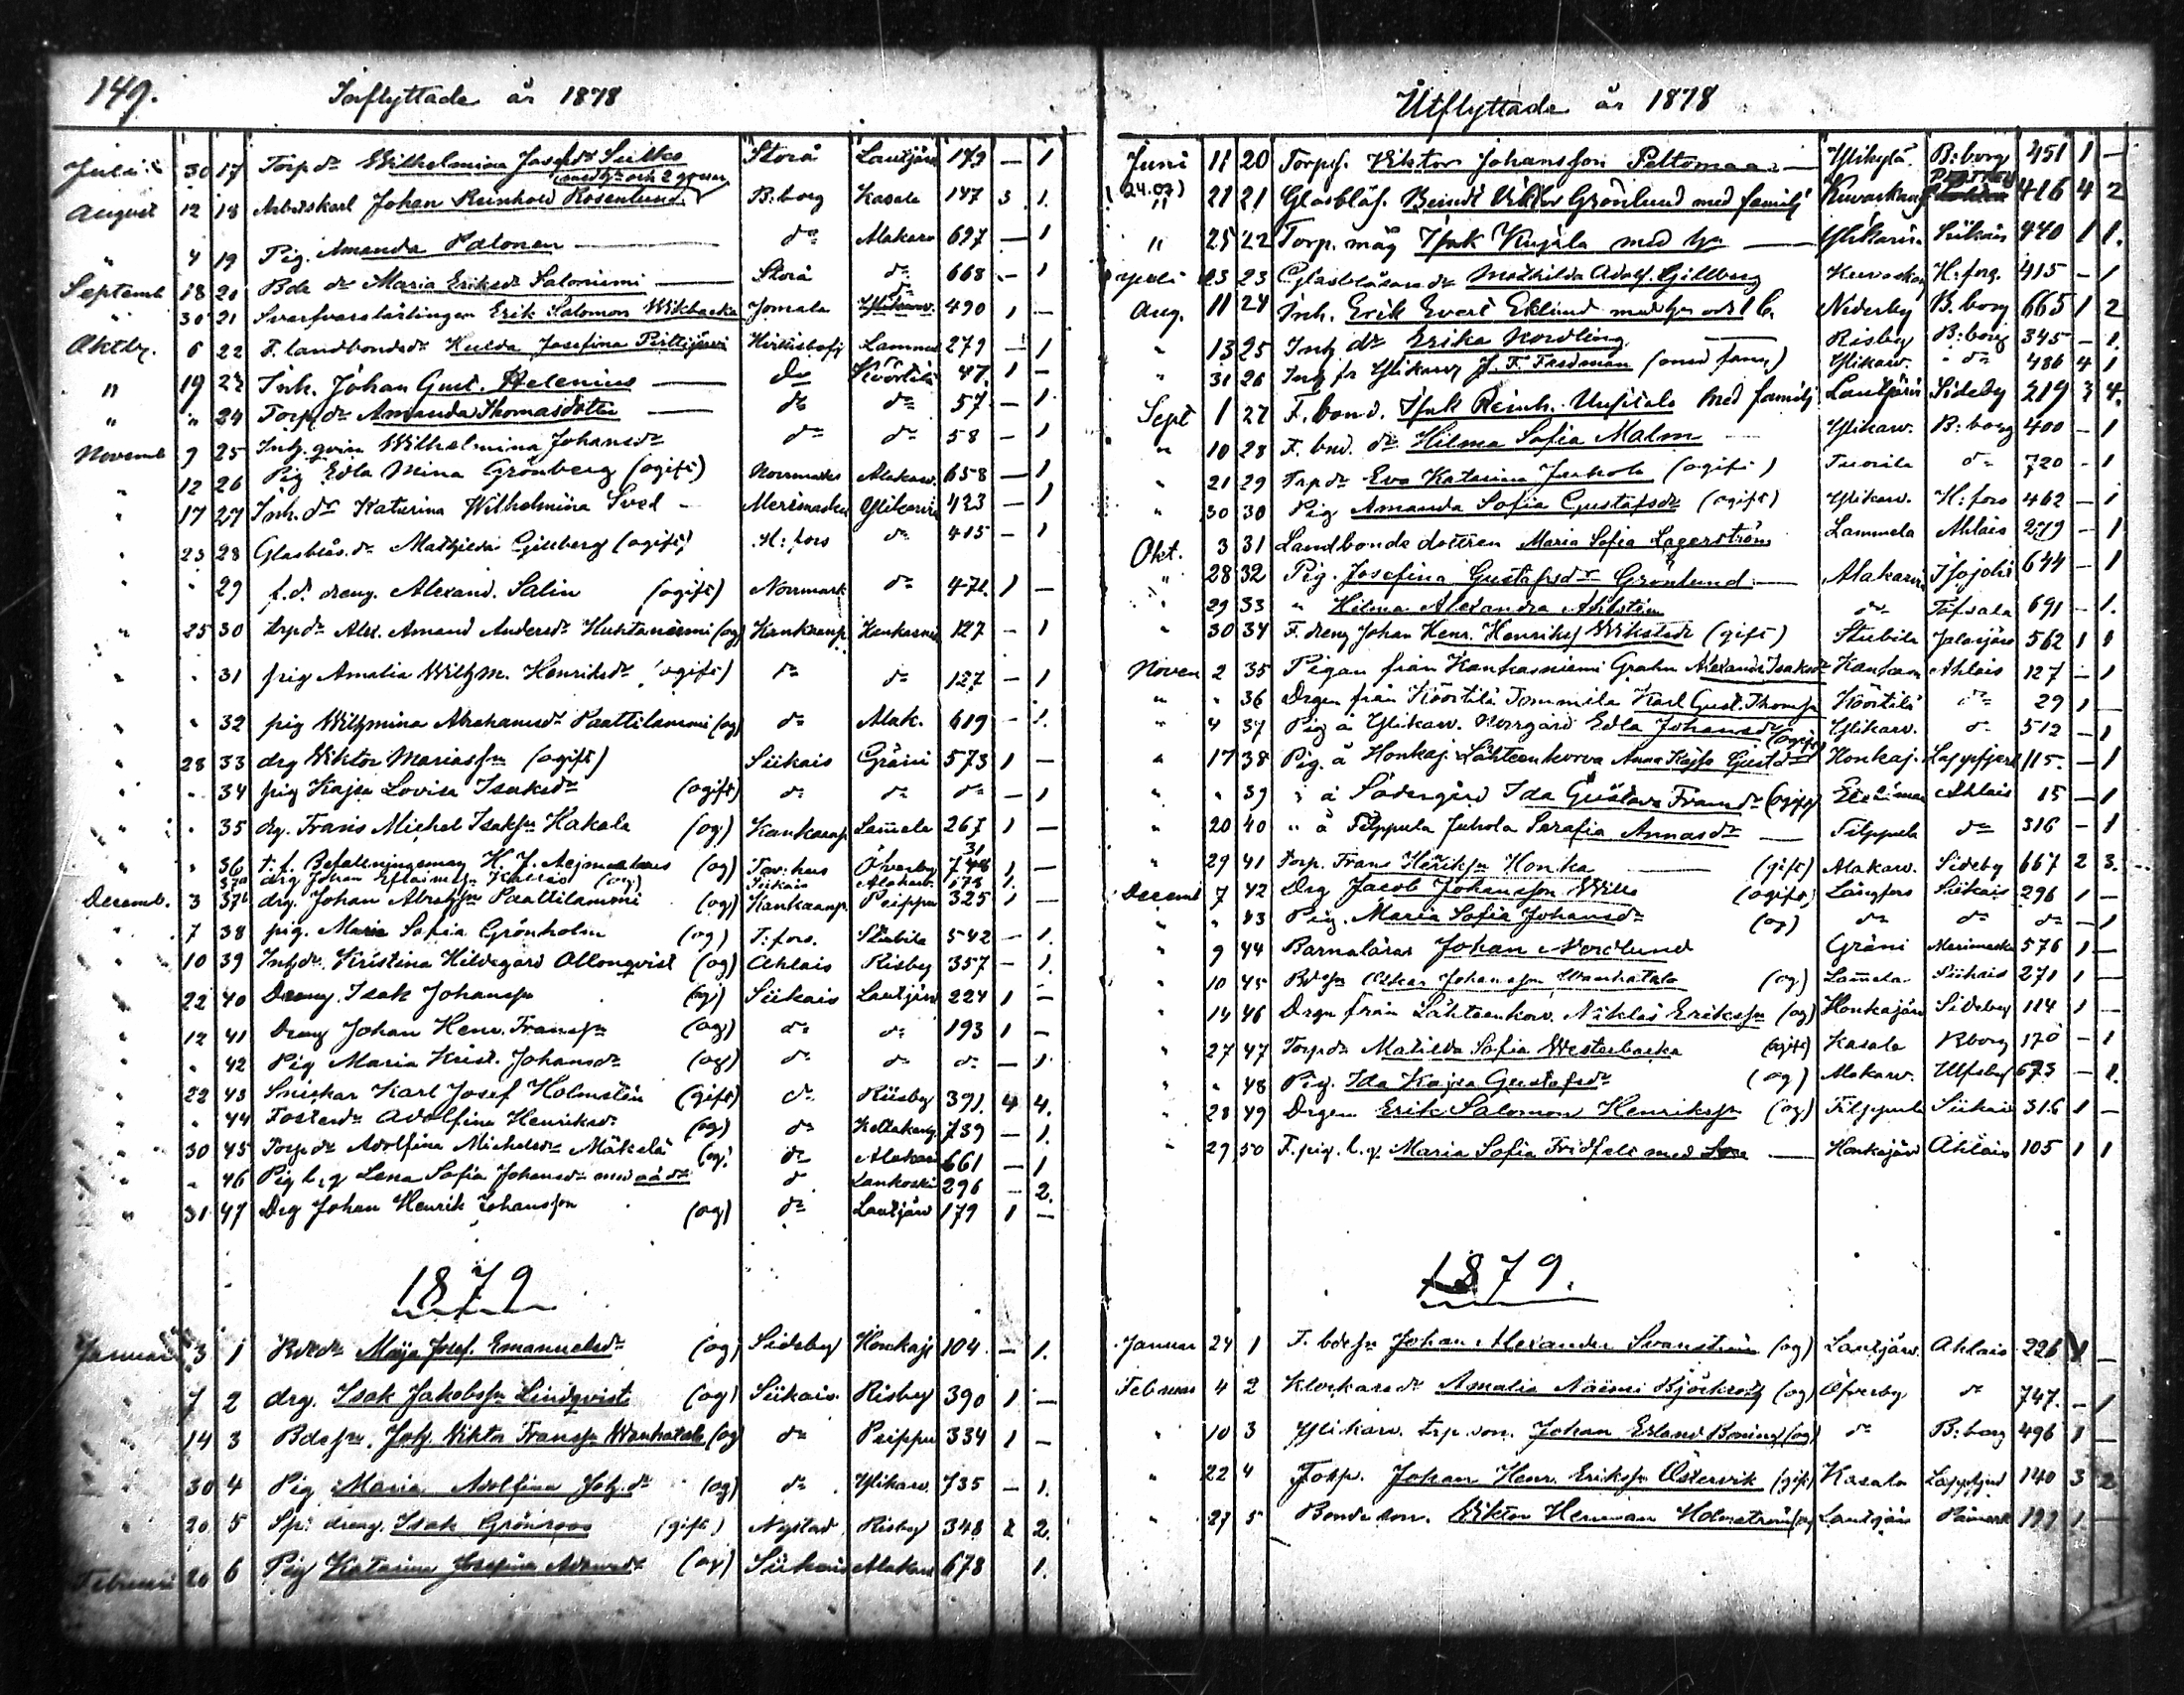 149.
Inflyttade år 1878
Juli 30 17 Torp.dr Wilhelmina Josefsdr Storå Lautjärw 179 — 1
med hu och 2
August 12 18 Arbetskarl Johan Reinhold Rosenlund B:borg Kasala 147 3 1.
" 4 19 Pig. Amanda Palonen — dr Alakarw 697 — 1
Septemb 18 20 Bde dr Maria Eriksdr Saloniemi — Storå dr 668 — 1
" 30 21 Svarfvarelärlingen Erik Salomon Wikbacka Jomala 490 1 —
Oktbr. 6 22 F. landbondedr Hulda Josefina 279 — 1
" 19 23 Inh. Johan Gust. Helenius — do Köörtilä 47. 1 —
" " 24 Torp.dr Amanda Thomasdotter — dr dr 57 — 1
Novemb 9 25 Inh. qvin Wilhelmina Johansdr dr dr 58 — 1
" 12 26 Pig Edla Mina Grönberg (ogift) Norrmark Alakarw. 658 — 1
" 17 27 Inh. dr Katarina Wilhelmina Sved – Merimasku Ylikarvi 423 — 1
" 23 28 Glasblås.dr Mathilda Gillberg (ogift) H:fors dr 415 — 1
" " 29 f.d. dreng. Alexand. Salin (ogift) Norrmark dr 471. 1 —
" 25 30 trpdr Alex. Amand Andersdr (og) Kankaanp. Kankasni 127 – 1
" " 31 pig Amalia Wilhm. Henriksdr (ogift) dr dr 127 — 1
" " 32 pig Wilhmina Abrahamsdr Paattilammi (og) dr Alak. 619 – 1.
" 28 33 drg Viktor Mariasson (ogift) Siikais Gräsi 573 1 —
" " 34 pig Kajsa Lovisa Isaksdr (ogift) dr dr dr — 1
" " 35 drg. Frans Michel Isaksson Hakala (og) Kankaanp Lamela 267 1 —
" " 36 t.f. Befallningsman K. J. Aejmelaeus (og) Tav:hus Öfverby 731 1 —
37a drg Johan (og) Siikais Alakarw. 1.
Decemb. 3 37b drg. Johan Abrahsson Paattilammi (og) Kankaanp. Peippu 325 1 —
" 7 38 pig. Maria Sofia Grönholm (og) T:fors. Stubila 542 — 1.
" 10 39 Inhdr. Kristina Hildegard Ollonqvist (og) Ahlais Risby 357 — 1.
" 22 40 Dreng. Isak Johansson (og) Siikais Lautjärw 224 1 —
" 12 41 Dreng Johan Henr. Fransson (og) dr dr 193 1 —
" " 42 Pig Maria Krist. Johansdr (og) dr dr dr — 1
" 22 43 Snickar Karl Josef Holmstén (gift) dr Riisby 391. 4 4.
" " 44 Fosterdr Adolfina Henriksdr (og) dr 739 — 1.
" 30 45 Torp dr Adolfina Michelsdr Mäkelä (og) dr Alakar 661 — 1
" " 46 Pig l.q Lena Sofia Johansdr med oä dr dr Lankoski 296 — 2.
" 31 47 Drg Johan Henrik Johansson (og) dr Lautjärw 179 1 —
1879
Januari 3 1 Bdedr Maja Josef. Emanuelsdr (og) Sideby Honkaj 104 — 1.
" 7 2 drg. Isak Jakobsson Lindqvist (og) Siikais Risby 390 1 —
" 14 3 Bdeson. Joh. Viktor Fransson Wanhatalo (og) dr Peippu 334 1 —
" 30 4 Pig Maria Adolfina Joh.dr (og) dr Ylikarw. 735 — 1.
" 20 5 Sp: dreng. Isak Grönroos (gift) Nystad Risby 348 2 2.
Februari 20 6 Pig Katarina Josefina Adamsdr (og) Siikais Alakarw 678 1.
Utflyttade år 1878
Juni 11 20 Torps. Viktor Johansson Peltomaa — Ylikylä B:borg 451 1 —
(24.07) " 21 21 Glasblås. Berndt Viktor Grönlund med familj 416 4 2
" 25 22 Torp. måg Isak Kujala med hu — Ylikarvi Siikais 440 1 1.
Juli 23 23 Glasblåsaredr Mathilda Adolf. Gillberg H:fors. 415 – 1
Aug. 11 24 Inh. Erik Evert Eklund med hu och 1 b. Nederby B.borg 665 1 2
" 13 25 Inh dr Erika Nordling — Risby B:borg 345 – 1.
" 31 26 Inh fr Ylikarw J. F. Fredman (med fam.) Ylikarw. dr 486 4 1
Sept 1 27 F. bond. Isak Reinh. Uusitalo med familj Lautjärvi Sideby 219 3 4.
" 10 28 F. bnd. dr Hilma Sofia Malm — Ylikarw. B:borg 400 – 1
" 21 29 Trp dr Eva Katarina Juhola (ogift) Tuorila dr 720 – 1
" 30 30 Pig Amanda Sofia Gustafsdr (ogift) Ylikarw. H:fors 462 – 1
Okt. 3 31 Landbonde dottren Maria Sofia Lagerström Lammela Ahlais 279 – 1
" 28 32 Pig. Josefina Gustafsdr Grönlund — Alakarvi Isojoki 644 – 1
" 29 33 " Hilma Alexandra Ahlstén dr Töfsala 691 – 1.
" 30 34 F. dreng Johan Henr. Henriksson Wikstedt (gift) Stubila 562 1 1
Novem 2 35 Pigan från Kankasniemi Grahn Alexandra Isaksdr Kankaan Ahlais 127 – 1
" " 36 Drgen från Köörtilä Tommila Karl Gust. Thomasson Köörtilä dr 29 1 —
" 4 37 Pig å Ylikarw. Norrgård Edla Johansdr (ogift) Ylikarw. dr 512 – 1
" 17 38 Pig. å Honkaj. Lähteenkorva Anna Kajsa Gustdr Honkaj. Lappfjerd 115. – 1
" " 39 " å Södergård Ida Gustava Framdr (ogift) Ahlais 15 – 1
" 20 40 " å Filppula Juhola Serafia Annasdr — Filppula dr 316 – 1
" 29 41 Torp. Frans Henriksson Honka — (gift) Alakarw. Sideby 667 2 3.
Decemb 7 42 Drg Jacob Johansson Wills (ogift) Långfors Siikais 296 1 —
" " 43 Pig. Maria Sofia Johansdr (og) dr dr dr – 1
" 9 44 Barnalärar Johan Nordlund Gräni Merimasku 576 1 —
" 10 45 Bdeson Oskar Johansson Wanhatalo (og) Lamela Siikais 271 1 —
" 14 46 Drgn från Lähteenkorv. Niklas Eriksson (og) Honkajärw Sideby 114 1 —
" 27 47 Torpdr Matilda Sofia Westerbacka (ogift) Kasala Bborg 170 – 1
" " 48 Pig. Ida Kajsa Gustafsdr (og) Alakarw. Ulfsby 673 – 1.
" 28 49 Drgen Erik Salomon Henriksson (og) Filppula Siikais 316 1 —
" 29 50 F. pig. l.q. Maria Sofia Fridfelt med son — Honkajärw Ahlais 105 1 1
1879.
Januar 24 1 F. bdeson Johan Alexander Svanström (og) Lautjärw. Ahlais 226 1 —
Februar 4 2 Klockaredr Amalia Naëmi Björkroth (og) Öfverby dr 747. – 1
" 10 3 Ylikarw. trp.son. Johan Erland Boning (og) dr B:borg 496 1 —
" 22 4 Torp. Johan Henr. Eriksson Östervik (gift) Kasala Lappfjerd 140 3 2
" 27 5 Bonde son. Viktor Herman Holmström (og) Lautjärw Påmark 199 1. —